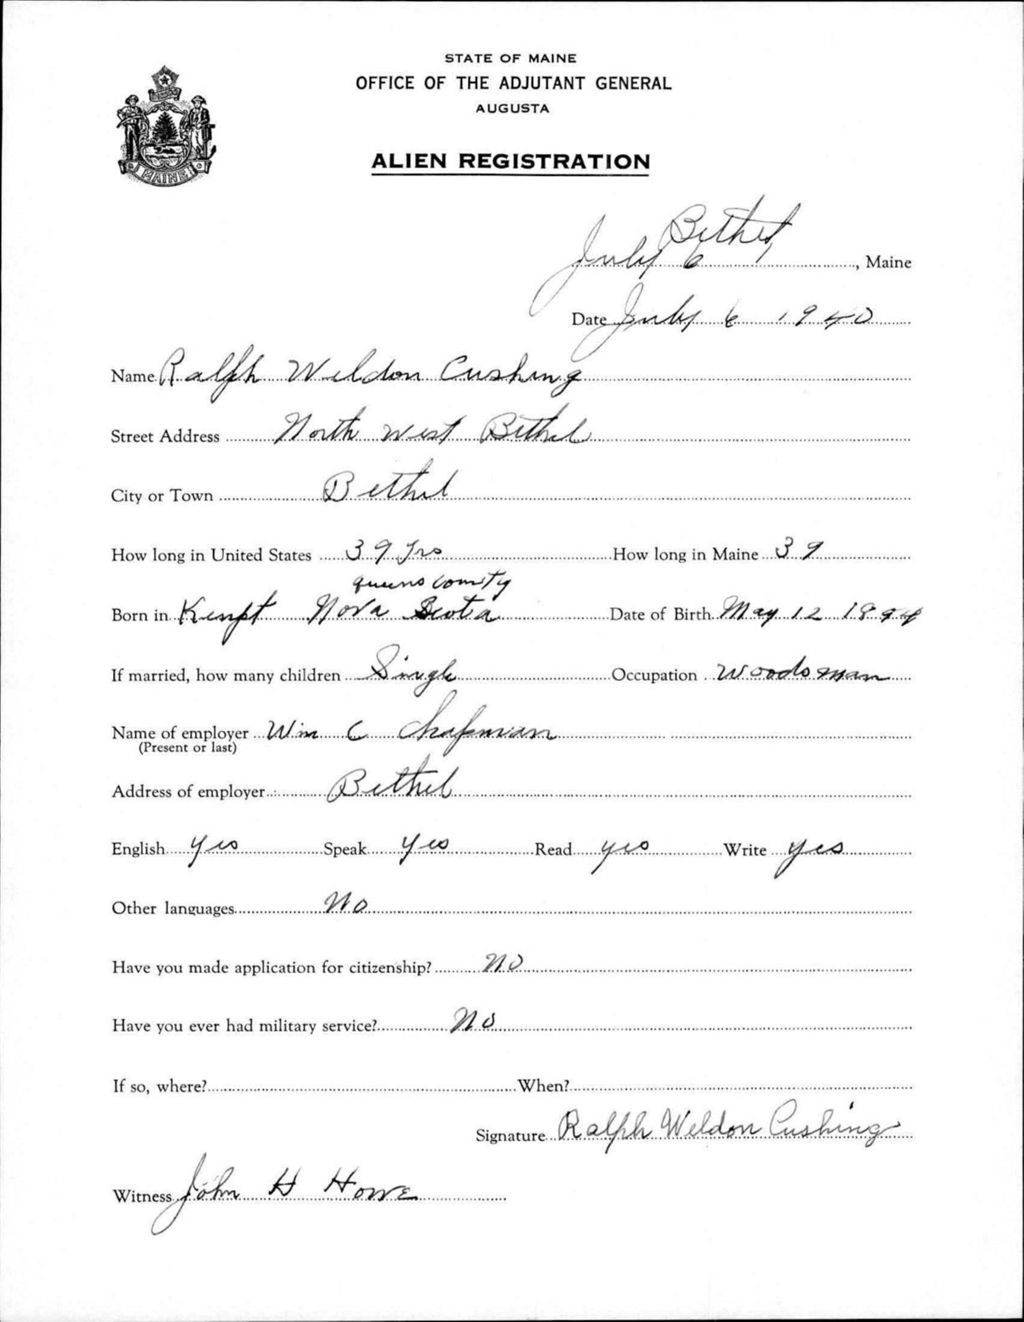 STATE OF MAINE
OFFICE OF THE ADJUTANT GENERAL
AUGUSTA
ALIEN REGISTRATION
Bethel
July 6, Maine
Date July 6 1940
Name Ralph Weldon Cushing
Street Address North West Bethel
City or Town Bethel
How long in United States 39 yrs How long in Maine 39
queens county
Born in Kempt Nova Scotia Date of Birth May 12 1894
If married, how many children Single Occupation Woodsman
Name of employer Wm C Chapman
(Present or last)
Address of employer Bethel
English Yes Speak Yes Read yes Write yes
Other languages No
Have you made application for citizenship? No
Have you ever had military service? No
If so, where? When?
Signature Ralph Weldon Cushing
Witness John H Howe
MAINE